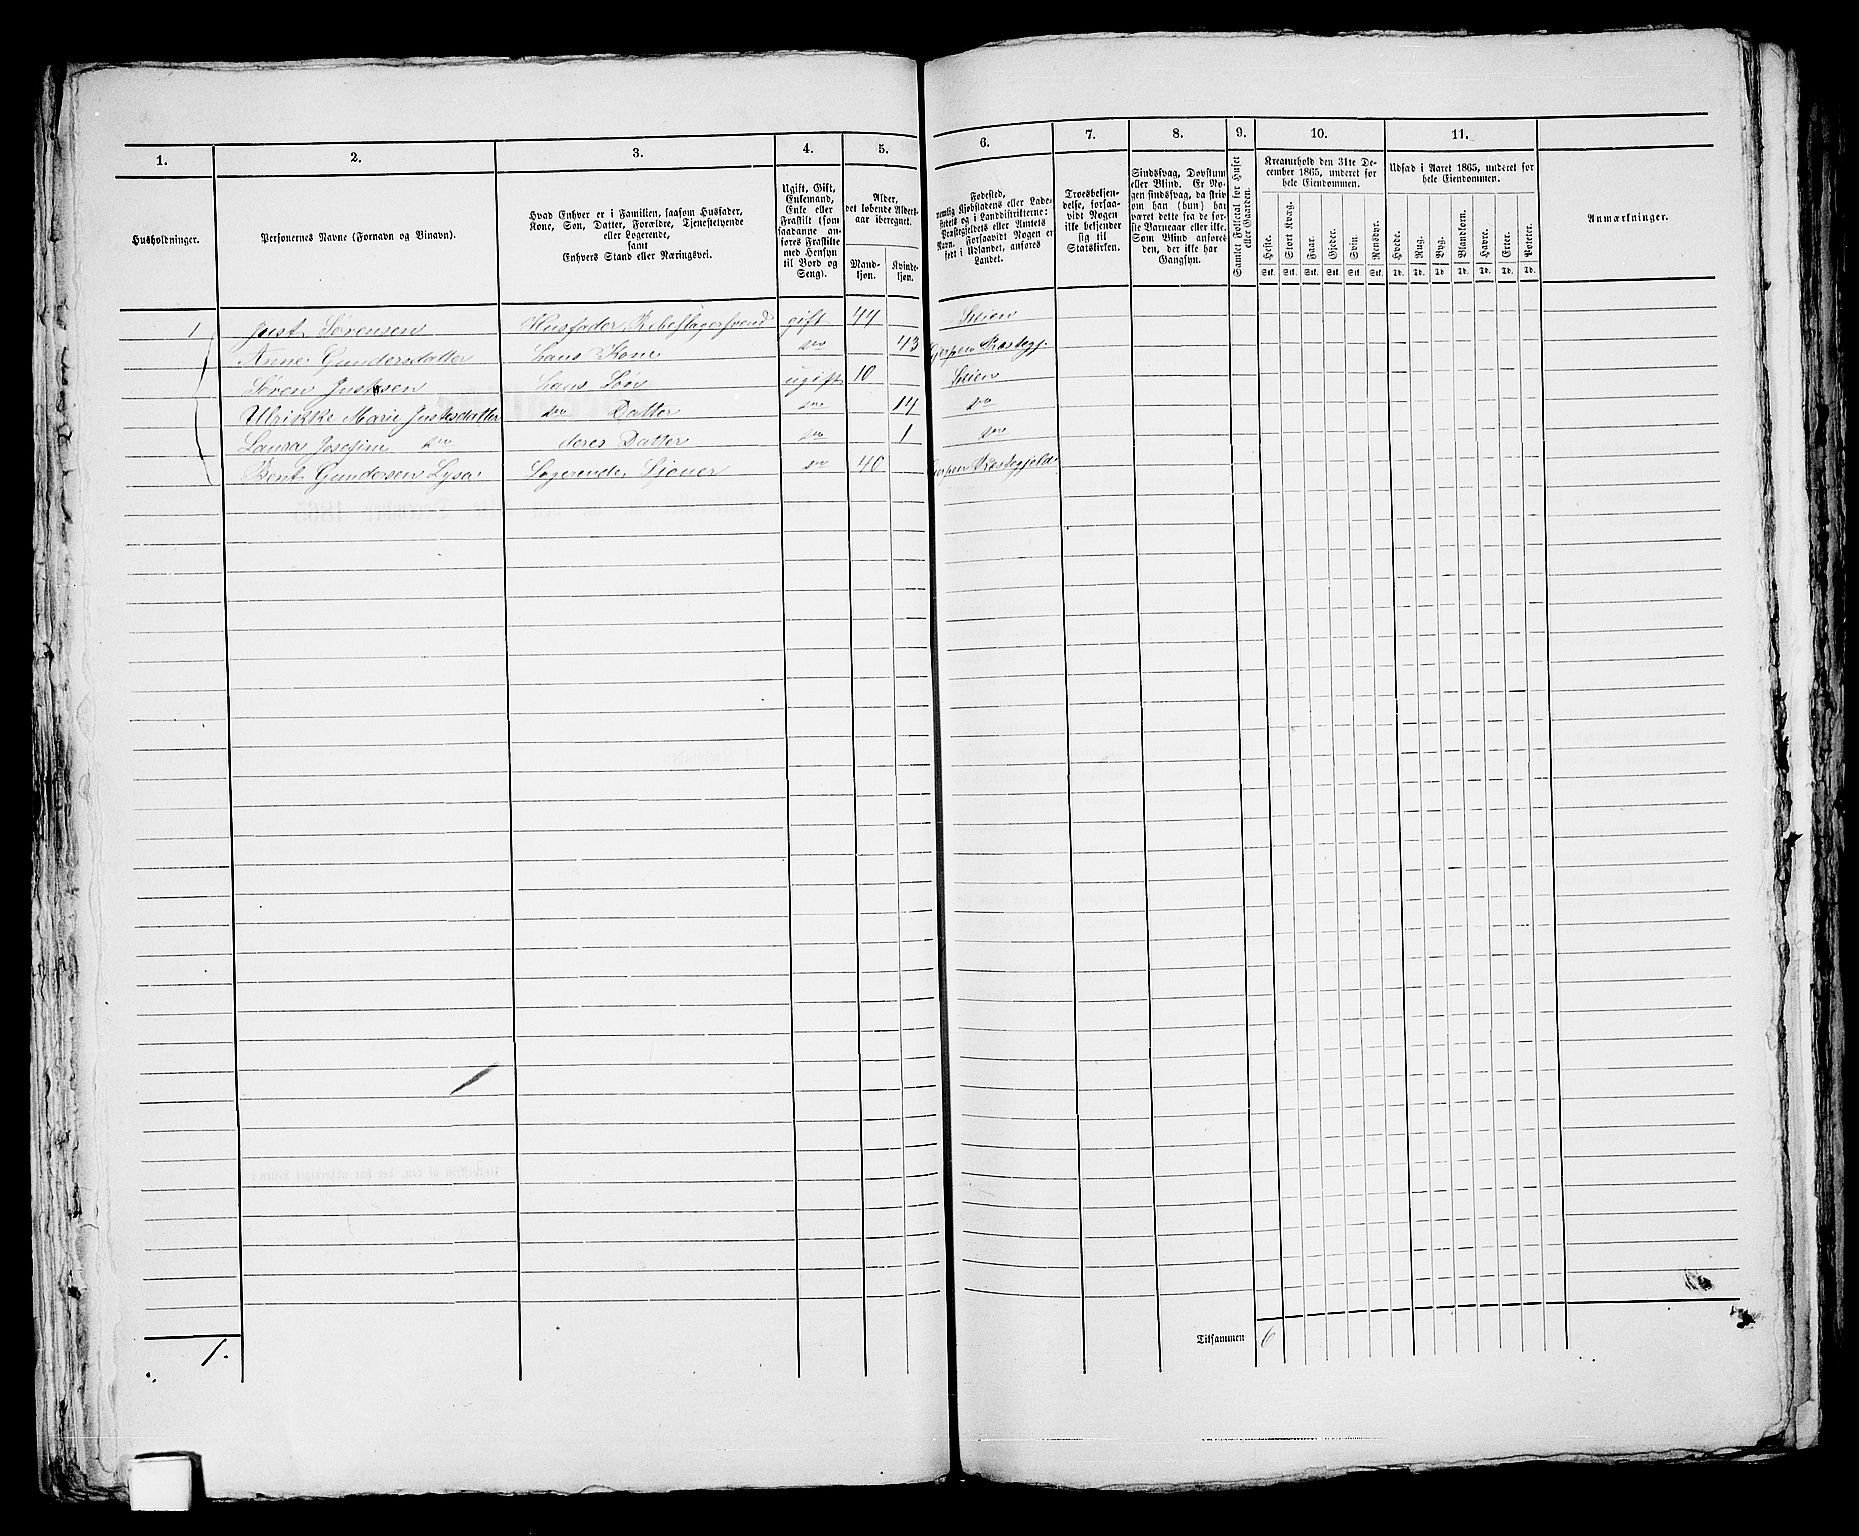 1. 2. 3. 4. 5. 6. 7. 8. 9. 10. 11.
Husholdninger.
Personernes Navne (Fornavn og Vinavn).
Hvad Enhver er i Familien, saasom Husfader,
Kone, Søn, Datter, Forældre, Tjenestetyende
eller Logerende,
samt
Enhvers Stand eller Næringsvei.
Ugift, Gift,
Enkemand,
Enke eller
Fraskilt (som
saadanne an-
føres Fraskilte
med Hensyn
til Bord og
Seng).
Alder,
det løbende Alders-
aar iberegnet.
Mand-
kjøn.
Kvinde-
kjøn.
Fødested,
nemlig Kjøbstadens eller Lade-
stedets og i Landdistrikterne:
Præstegjeldets eller Amtets
Navn. Forsaavidt Nogen er
født i Udlandet, anføres
Landet.
Troesbekjen-
delse, forsaa-
vidt Nogen
ikke bekjender
sig til
Statskirken.
Sindssvag, Døvstum
eller Blind. Er No-
gen sindssvag, da skriv
om han (hun) har
været dette fra de før-
ste Barneaar eller ikke.
Som Blind anføres
den, der ikke har
Gangsyn.
Samlet Folketal for Huset
eller Gaarden.
Kreaturhold den 31te De-
cember 1865, underet for
hele Eiendommen.
Heste. Stort Kvæg. Faar. Gjeder. Svin. Rensdyr.
Stk. Stk. Stk. Stk. Stk. Stk.
Udsæd i Aaret 1865, underet for
hele Eiendommen.
Hvede. Rug. Byg. Blandkorn. Havre. Erter. Poteter.
Td. Td. Td. Td. Td. Td. Td.
Anmærkninger.
1 Just Sørensen Husfader, Rebeslagersvend gift 44 Skien
Anne Gundersdatter hans Kone do 43 Gjerpen Præstegj.
Søren Justesen hans Søn ugift 10 Skien
Ulrikke Marie Justesdatter do Datter do 14 do
Laura Josefine do deres Datter do 1 do
Bent Gundersen Lysa Logerende, Sjouer do 40 Gjerpen Præstegjeld
1.
Tilsammen 6